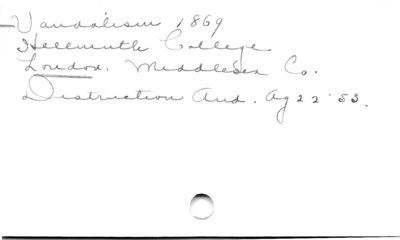 Vandalism 1869
Hellmuth College
London. Middlesex Co.
Distruction And. Ag 22 '53.